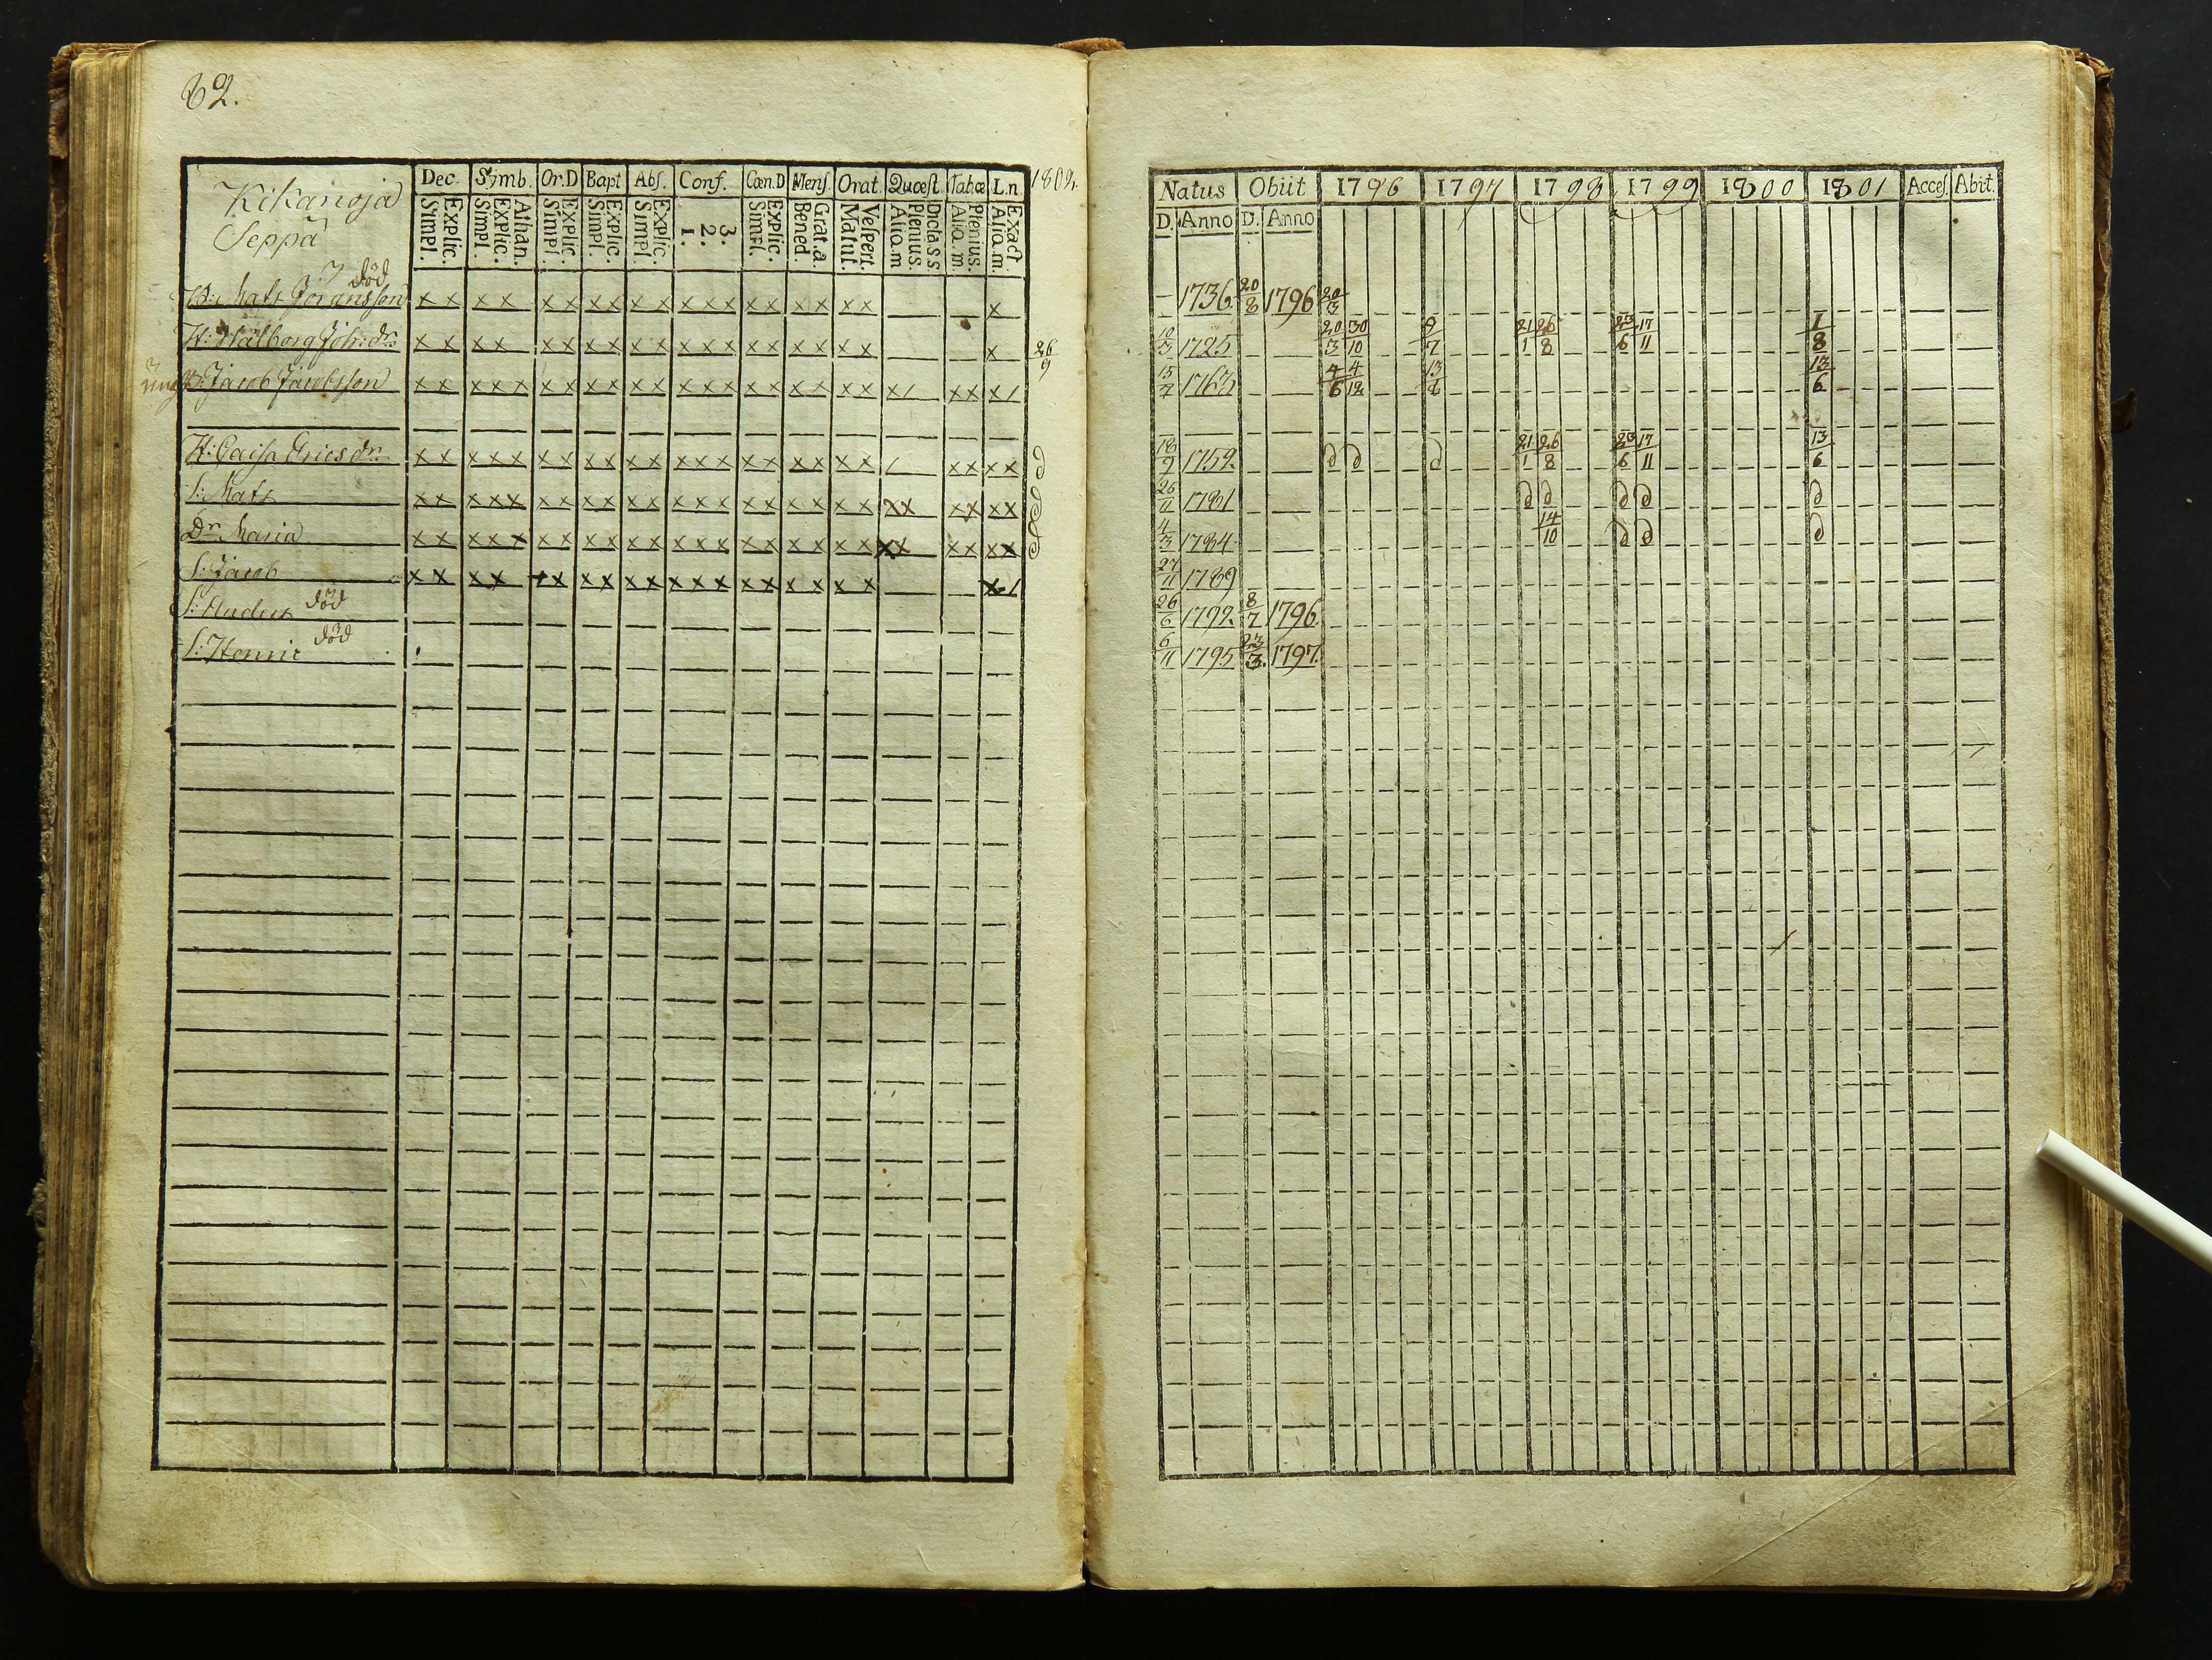 62.
Kikanoja
Seppä
Dec. Simb. Or.D Bapt Abs. Conf. Cœn.D Mens. Orat. Quœst. Tabœ L.n. 1802.
Simpl. Explic. Simpl. Explic. Athan. Simpl. Explic. Simpl. Explic. Simpl. Explic. 1. 2. 3. Simpl. Explic. Bened. Grat.a. Matut. Vespert. Aliq.m Plenius. Dicta.s.s Aliq.m. Plenius. Aliq.m. Exact
död
B: Matts Göransson x x x x x x x x x x x x x x x x x x x x
H: Walborg Joh: dr. x x x x x x x x x x x x x x x x x x x x 26/9
B: Jacob Jacobsson
H: Caisa Erics dr.
S: Matts
Dr Maria
S: Jacob
S: Anders död
S: Henric död
Natus Obiit 1796 1797 1798 1799 1800 1801 Acces. Abit.
D. Anno D. Anno
1736. 20/8 1796 20/3
10/3 1725 20/3 30/10 9/7 21/1 26/8 23/6 17/11 1/8
15/7 1763 4/6 4/12 13/6 13/6
18/9 1759. d d d 21/1 26/8 23/6 17/11 13/6
26/11 1781 d d d d d
4/3 1784 14/10 d d d
27/11 1789
26/6 1792. 8/7 1796.
6/11 1795 23/3. 1797.